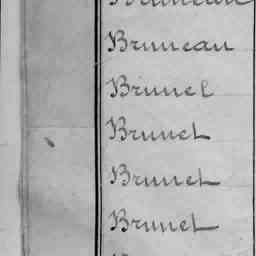 Bruneau
Bruneau
Brunel
Brunet
Brunet
Brunet